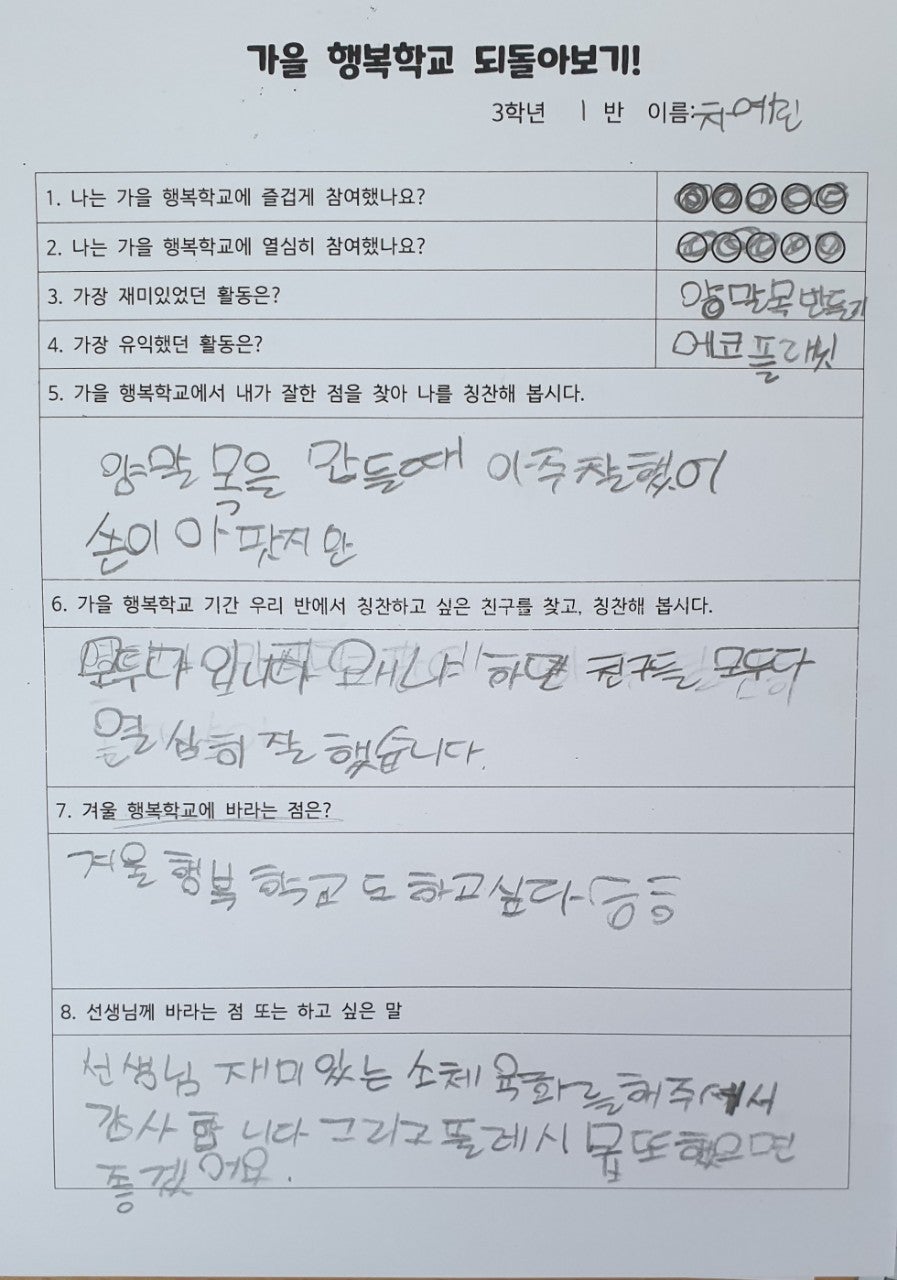 가을 행복학교 되돌아보기!
3학년 1 반 이름:차예린
1. 나는 가을 행복학교에 즐겁게 참여했나요?
2. 나는 가을 행복학교에 열심히 참여했나요?
3. 가장 재미있었던 활동은? 양말목 만들기
4. 가장 유익했던 활동은? 에코 플래닛
5. 가을 행복학교에서 내가 잘한 점을 찾아 나를 칭찬해 봅시다.
양말 목을 만들때 아주 잘했어
손이 아 팟지 만
6. 가을 행복학교 기간 우리 반에서 칭찬하고 싶은 친구를 찾고, 칭찬해 봅시다.
모두다 입니다 왜냐 하면 친구들 모두다
열심히 잘 했습니다.
7. 겨울 행복학교에 바라는 점은?
겨울 행복 학교 도 하고싶다
8. 선생님께 바라는 점 또는 하고 싶은 말
선생님 재미 있는 소체육화를해주셔서
감사 합 니다 그리고 플레시 몹 또 했으면
좋 겠 어요.